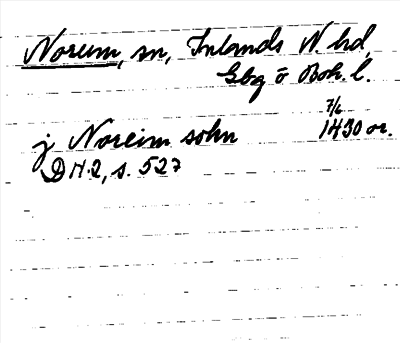 Norum, sn, Inlands N hd,
Gbg o Boh. l.
7/6
j Noreim sohn 1430 or.
DN.2, s. 527